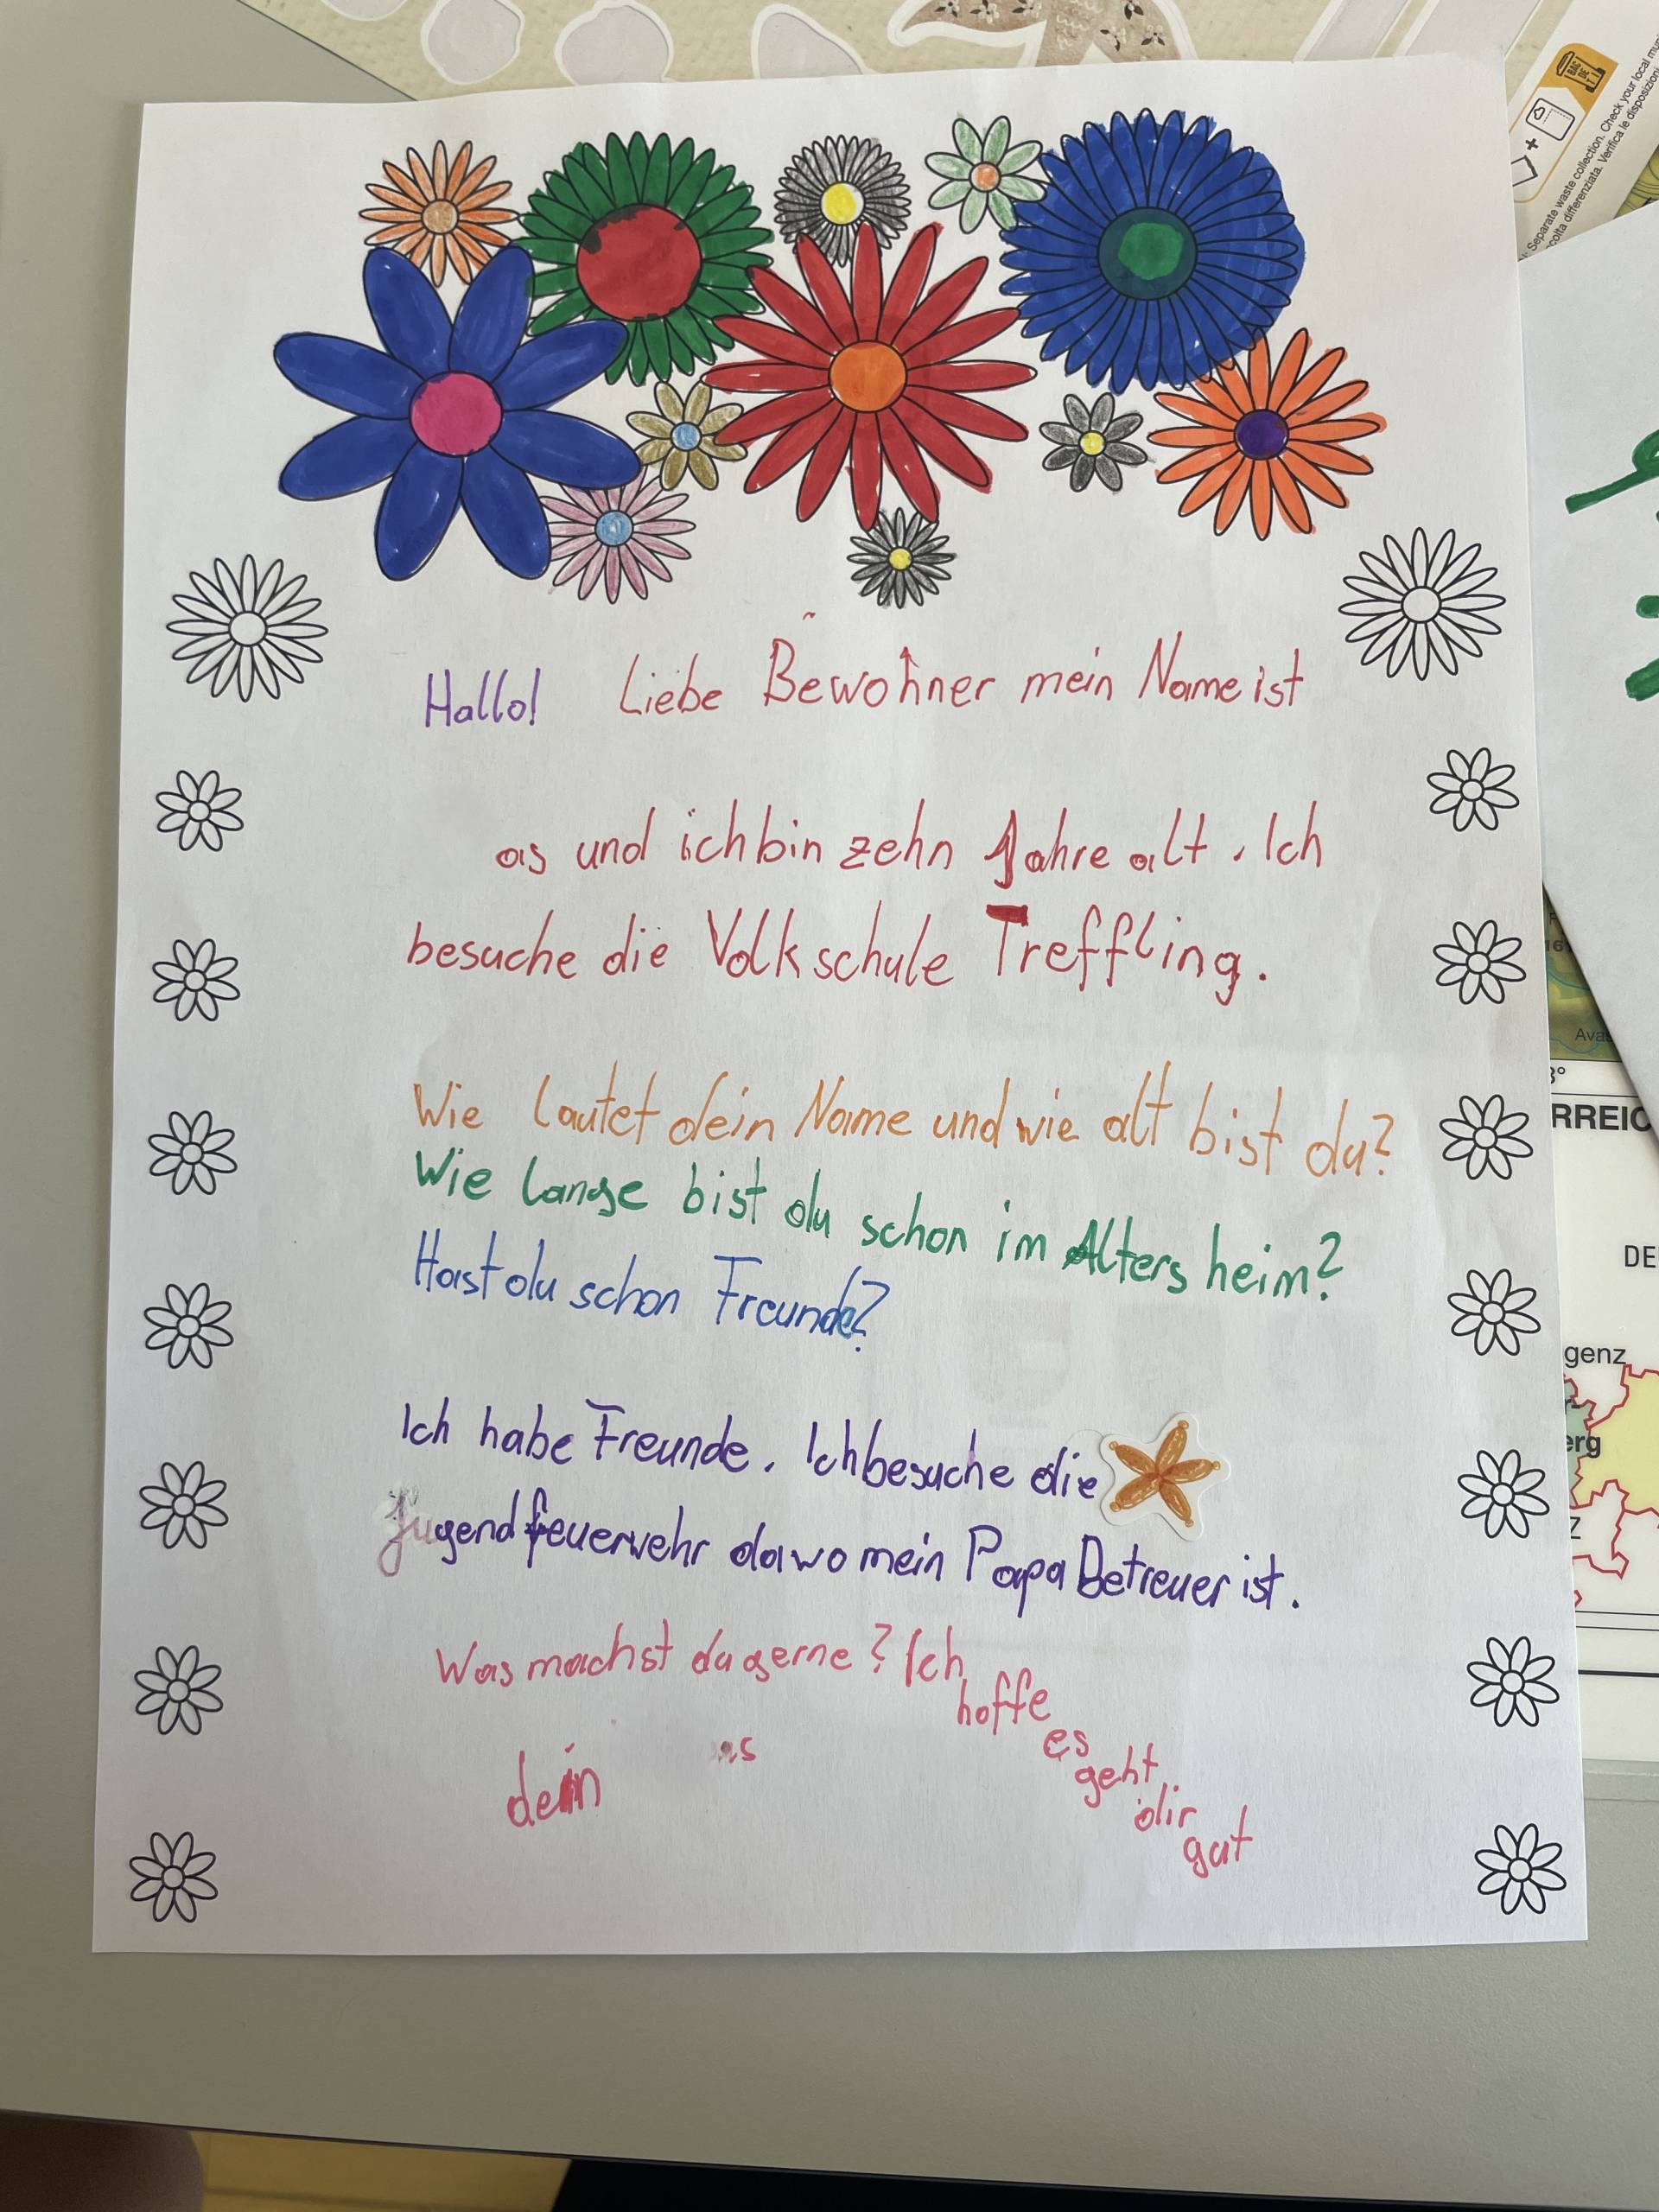 Hallo! Liebe Bewohner mein Name ist
as und ich bin zehn Jahre alt. Ich
besuche die Volkschule Treffling.
Wie lautet dein Name und wie alt bist du?
Wie lange bist du schon im Altersheim?
Hast du schon Freunde?
Ich habe Freunde. Ich besuche die
Jugendfeuerwehr da wo mein Papa Betreuer ist.
Was machst du gerne? Ich
hoffe
es
geht
dir
gut
dein as
Separate waste collection. Check your local mun
colta differenziata. Verifica le disposizioni
RREIC
DE
genz
erg